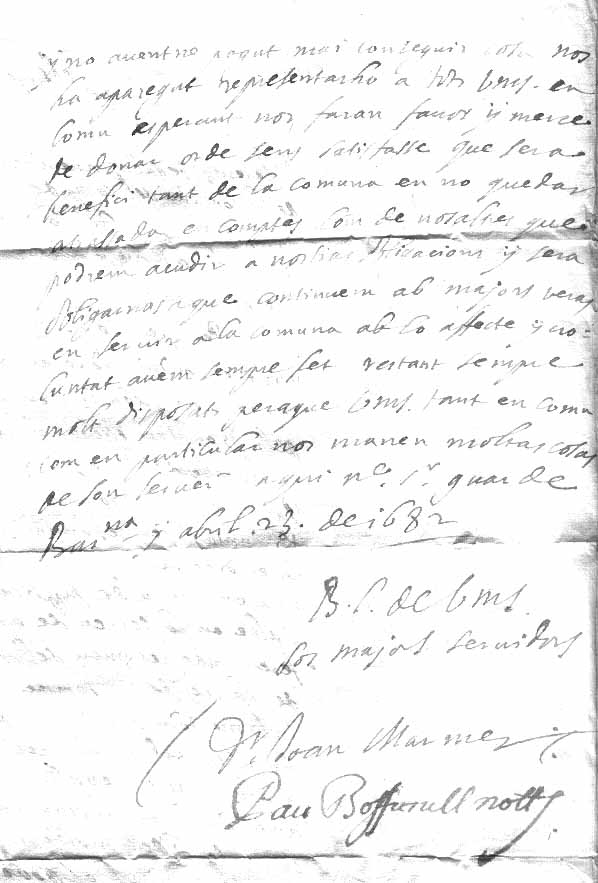 y no auentne pogut mai conseguir cosa nos
ha aparegut representarho a tots Vms. en
Comu esperant nos faran fauor y merce
de donar orde sens satisfasse que sera
benefici tant de la comuna en no quedar
atrasada en comptes com de nosaltres que
podrem acudir a nostras obligacions y sera
obligarnos a que continuem ab majors veras
en seruir a la comuna ab lo affecte y vo-
luntat auem sempre fet restant sempre
molt disposats peraque Vms. tant en comu
com en particular nos manen moltas cosas
de son seruey a qui n.e S.r guarde
Bar.na y abril .23. de 1682
B. S. de Vms.
Sos majors seruidors
D.r Joan Marmer
Pau Boffurull nott.